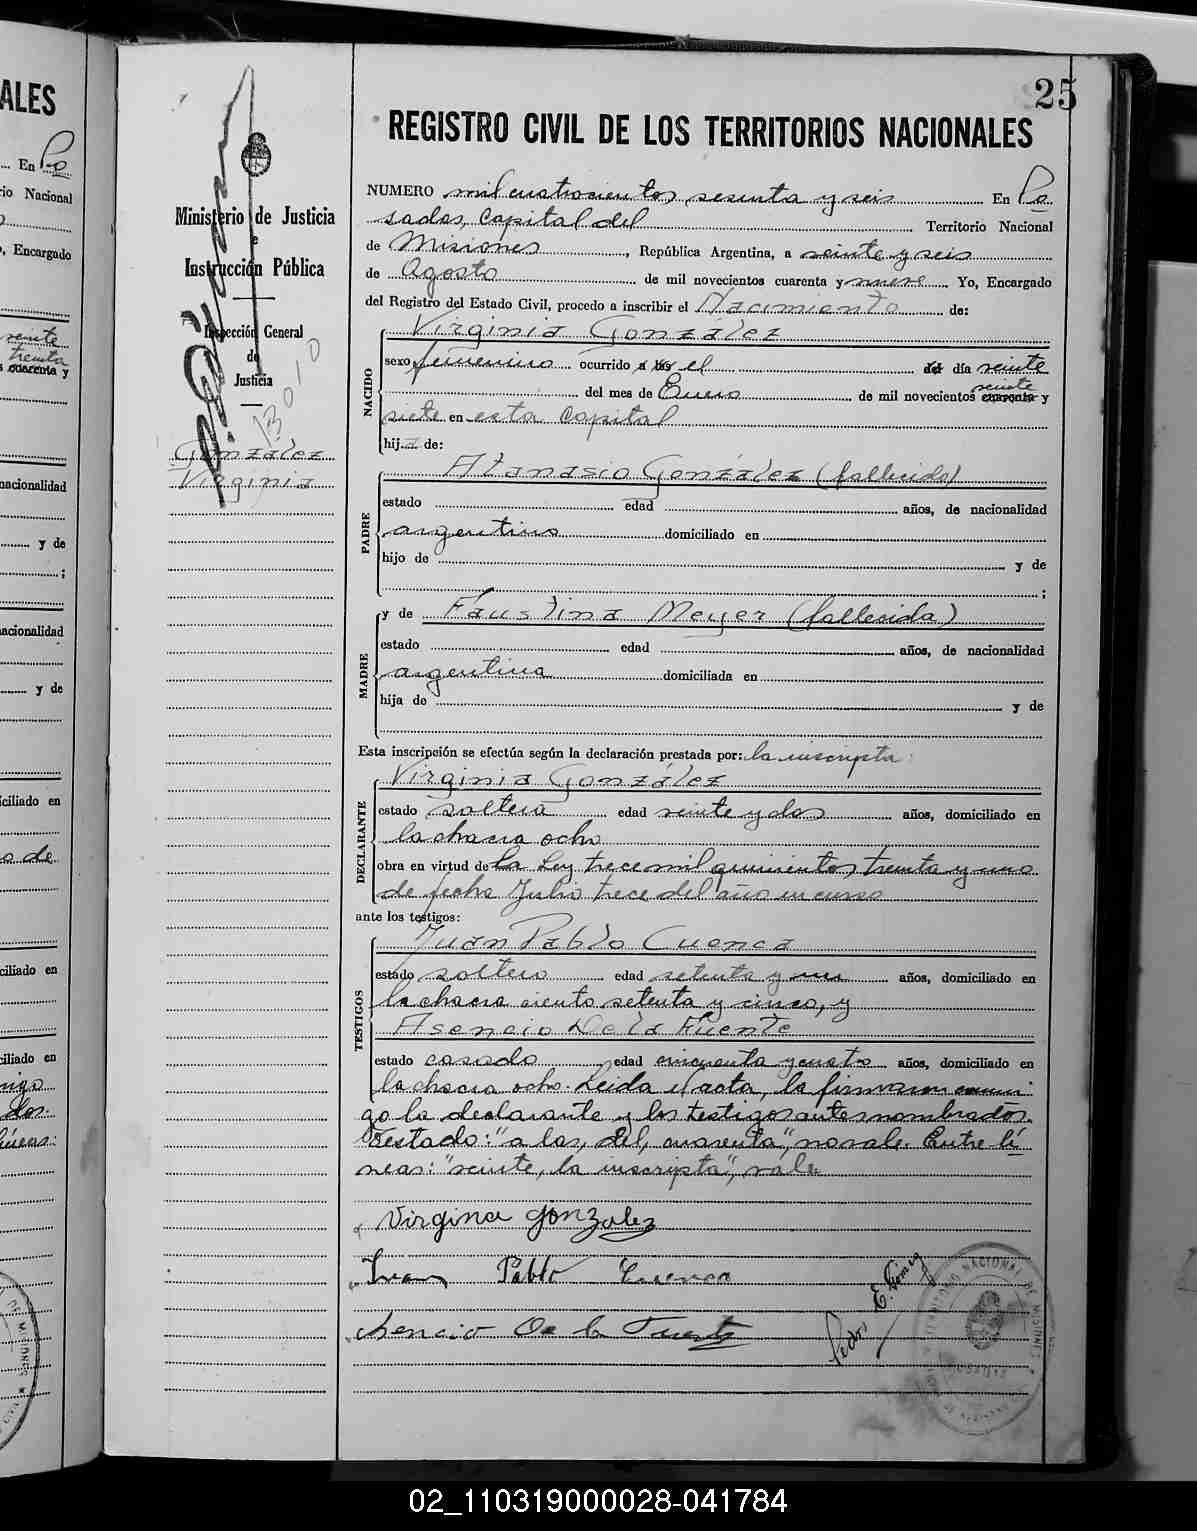 25
REGISTRO CIVIL DE LOS TERRITORIOS NACIONALES
Ministerio de Justicia
e
Instrucción Pública
Inspección General
de
Justicia
13010
González
Virginia
NUMERO mil cuatrocientos sesenta y seis En Po
sadas, Capital del Territorio Nacional
de Misiones, República Argentina, a veinte y seis
de Agosto de mil novecientos cuarenta y nueve Yo, Encargado
del Registro del Estado Civil, procedo a inscribir el Nacimiento de:
NACIDO
Virginia González
sexo femenino ocurrido a las el del día veinte
del mes de Enero de mil novecientos cuarenta veinte y
siete en esta Capital
hija de:
PADRE
Atanasio González (fallecido)
estado edad años, de nacionalidad
argentino domiciliado en
hijo de y de
;
MADRE
y de Faustina Meyer (fallecida)
estado edad años, de nacionalidad
argentina domiciliada en
hija de y de
Esta inscripción se efectúa según la declaración prestada por: la inscripta:
DECLARANTE
Virginia González
estado soltera edad veinte y dos años, domiciliado en
la chacra ocho
obra en virtud de la Ley trece mil quinientos treinta y uno
de fecha Julio trece del año en curso
ante los testigos:
TESTIGOS
Juan Pablo Cuenca
estado soltero edad setenta y años, domiciliado en
la chacra ciento setenta y cinco, y
Asencio De la Fuente
estado casado edad cincuenta y cuatro años, domiciliado en
la chacra ocho. Leida el acta, la firmaron conmi-
go la declarante y los testigos antes nombrados.
Testado: "a las, del, cuarenta", no vale. Entre lí-
neas: "veinte, la inscripta", vale
Virgina gonzalez
Juan Pablo Cuenca
Asencio De la Fuente
Pedro E. Gómez
TERRITORIO NACIONAL DE MISIONES
ALES
En Po
Nacional
, Encargado
veinte
treinta
cuarenta y
nacionalidad
y de
;
nacionalidad
y de
iciliado en
de
ciliado en
ciliado en
DE MISIONES
02_110319000028-041784